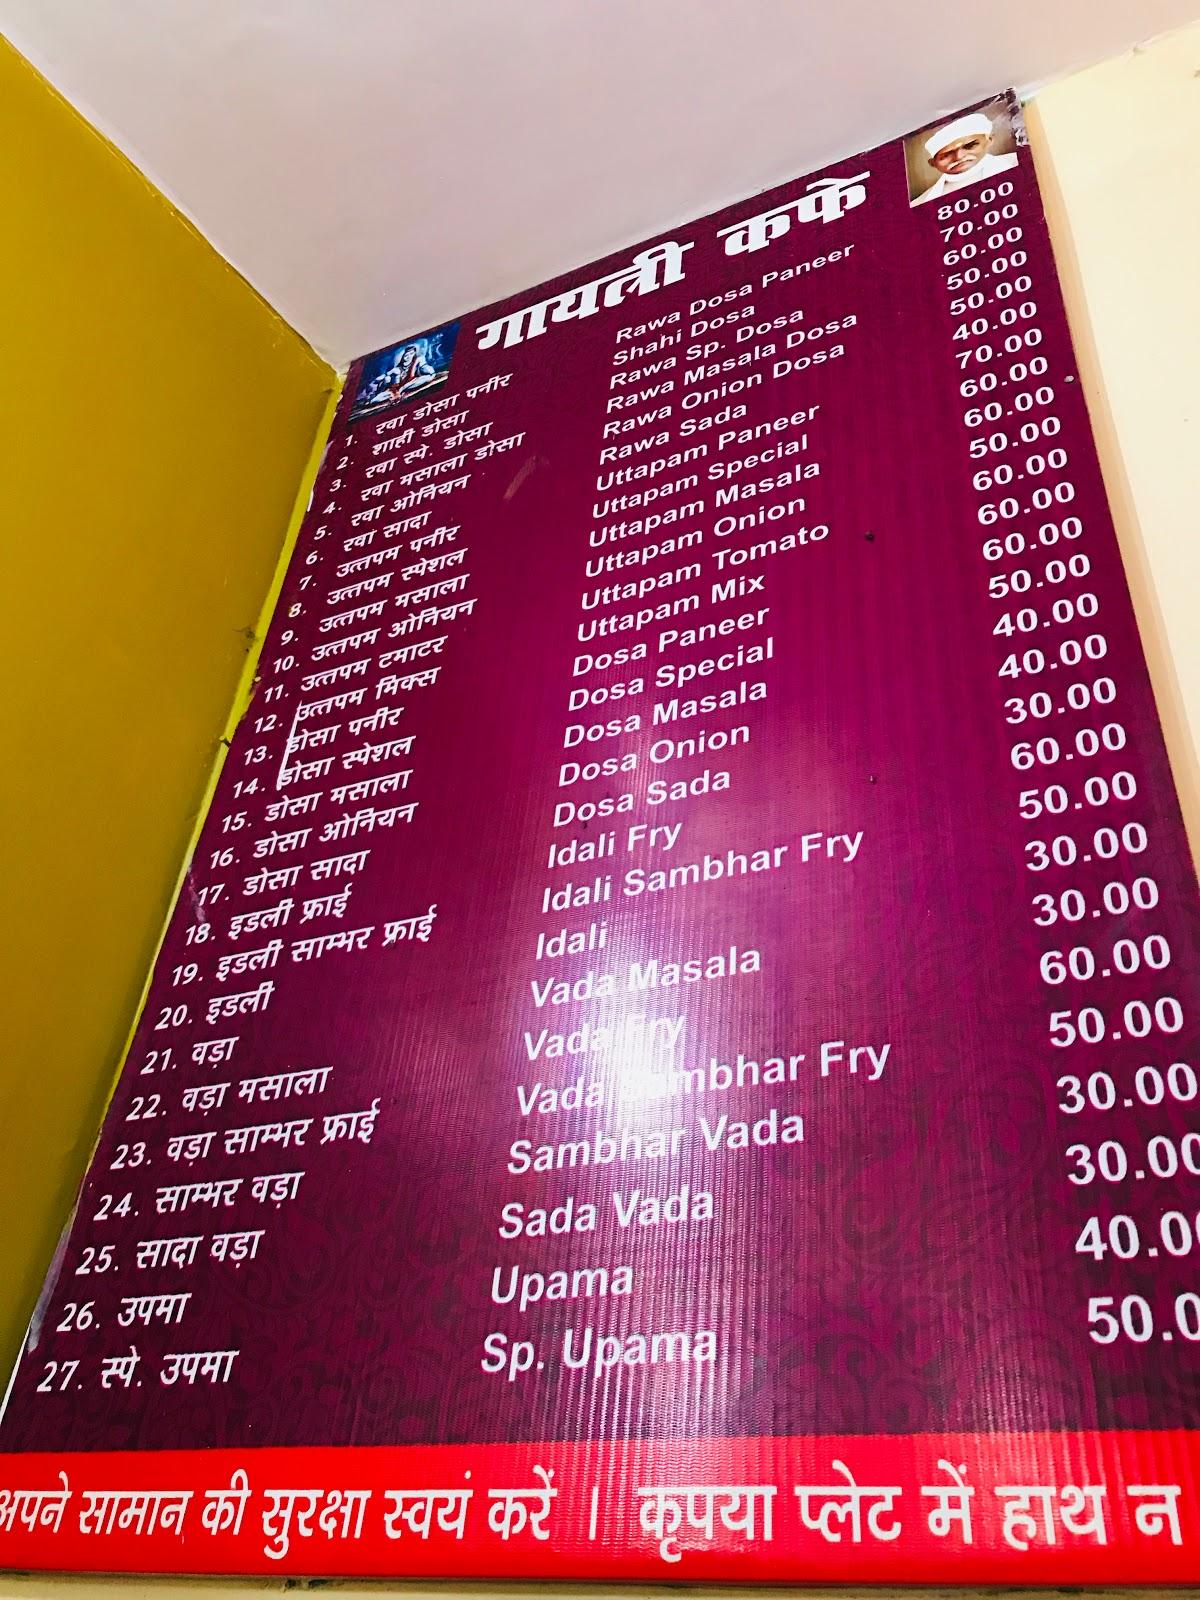 गायत्री कफे
1. रवा डोसा पनीर Rawa Dosa Paneer 80.00
2. शाही डोसा Shahi Dosa 70.00
3. रवा स्पे. डोसा Rawa Sp. Dosa 60.00
4. रवा मसाला डोसा Rawa Masala Dosa 50.00
5. रवा ओनियन Rawa Onion Dosa 50.00
6. रवा सादा Rawa Sada 40.00
7. उत्तपम पनीर Uttapam Paneer 70.00
8. उत्तपम स्पेशल Uttapam Special 60.00
9. उत्तपम मसाला Uttapam Masala 60.00
10. उत्तपम ओनियन Uttapam Onion 50.00
11. उत्तपम टमाटर Uttapam Tomato 60.00
12. उत्तपम मिक्स Uttapam Mix 60.00
13. डोसा पनीर Dosa Paneer 60.00
14. डोसा स्पेशल Dosa Special 50.00
15. डोसा मसाला Dosa Masala 40.00
16. डोसा ओनियन Dosa Onion 40.00
17. डोसा सादा Dosa Sada 30.00
18. इडली फ्राई Idali Fry 60.00
19. इडली साम्भर फ्राई Idali Sambhar Fry 50.00
20. इडली Idali 30.00
21. वड़ा Vada Masala 30.00
22. वड़ा मसाला Vada Fry 60.00
23. वड़ा साम्भर फ्राई Vada Sambhar Fry 50.00
24. साम्भर वड़ा Sambhar Vada 30.00
25. सादा वड़ा Sada Vada 30.00
26. उपमा Upama 40.00
27. स्पे. उपमा Sp. Upama 50.0
अपने सामान की सुरक्षा स्वयं करें । कृपया प्लेट में हाथ न